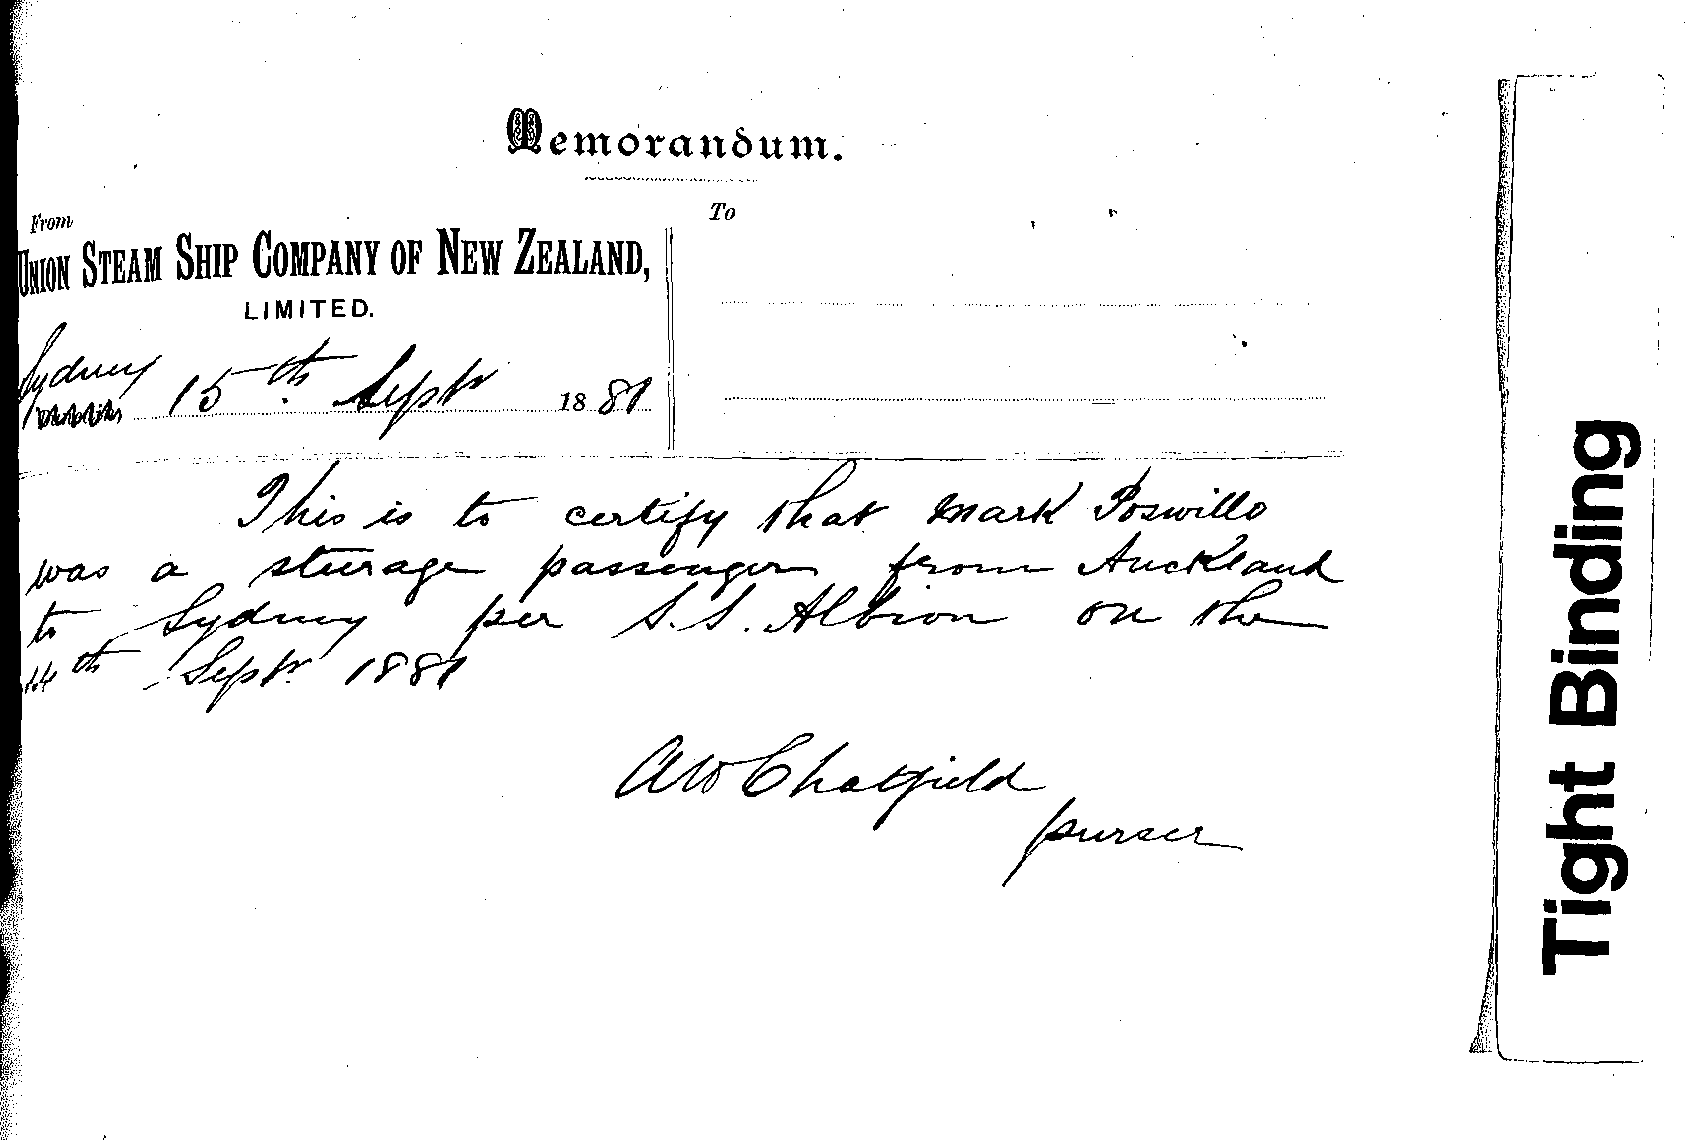 Memorandum.
From
UNION STEAM SHIP COMPANY OF NEW ZEALAND,
LIMITED.
To
Sydney
15th Sept 1881
This is to certify that Mark Poswillo
was a steerage passenger from Auckland
to Sydney per S.S. Albion on the
14th Sept. 1881
AW Chatfield
purser
Tight Binding